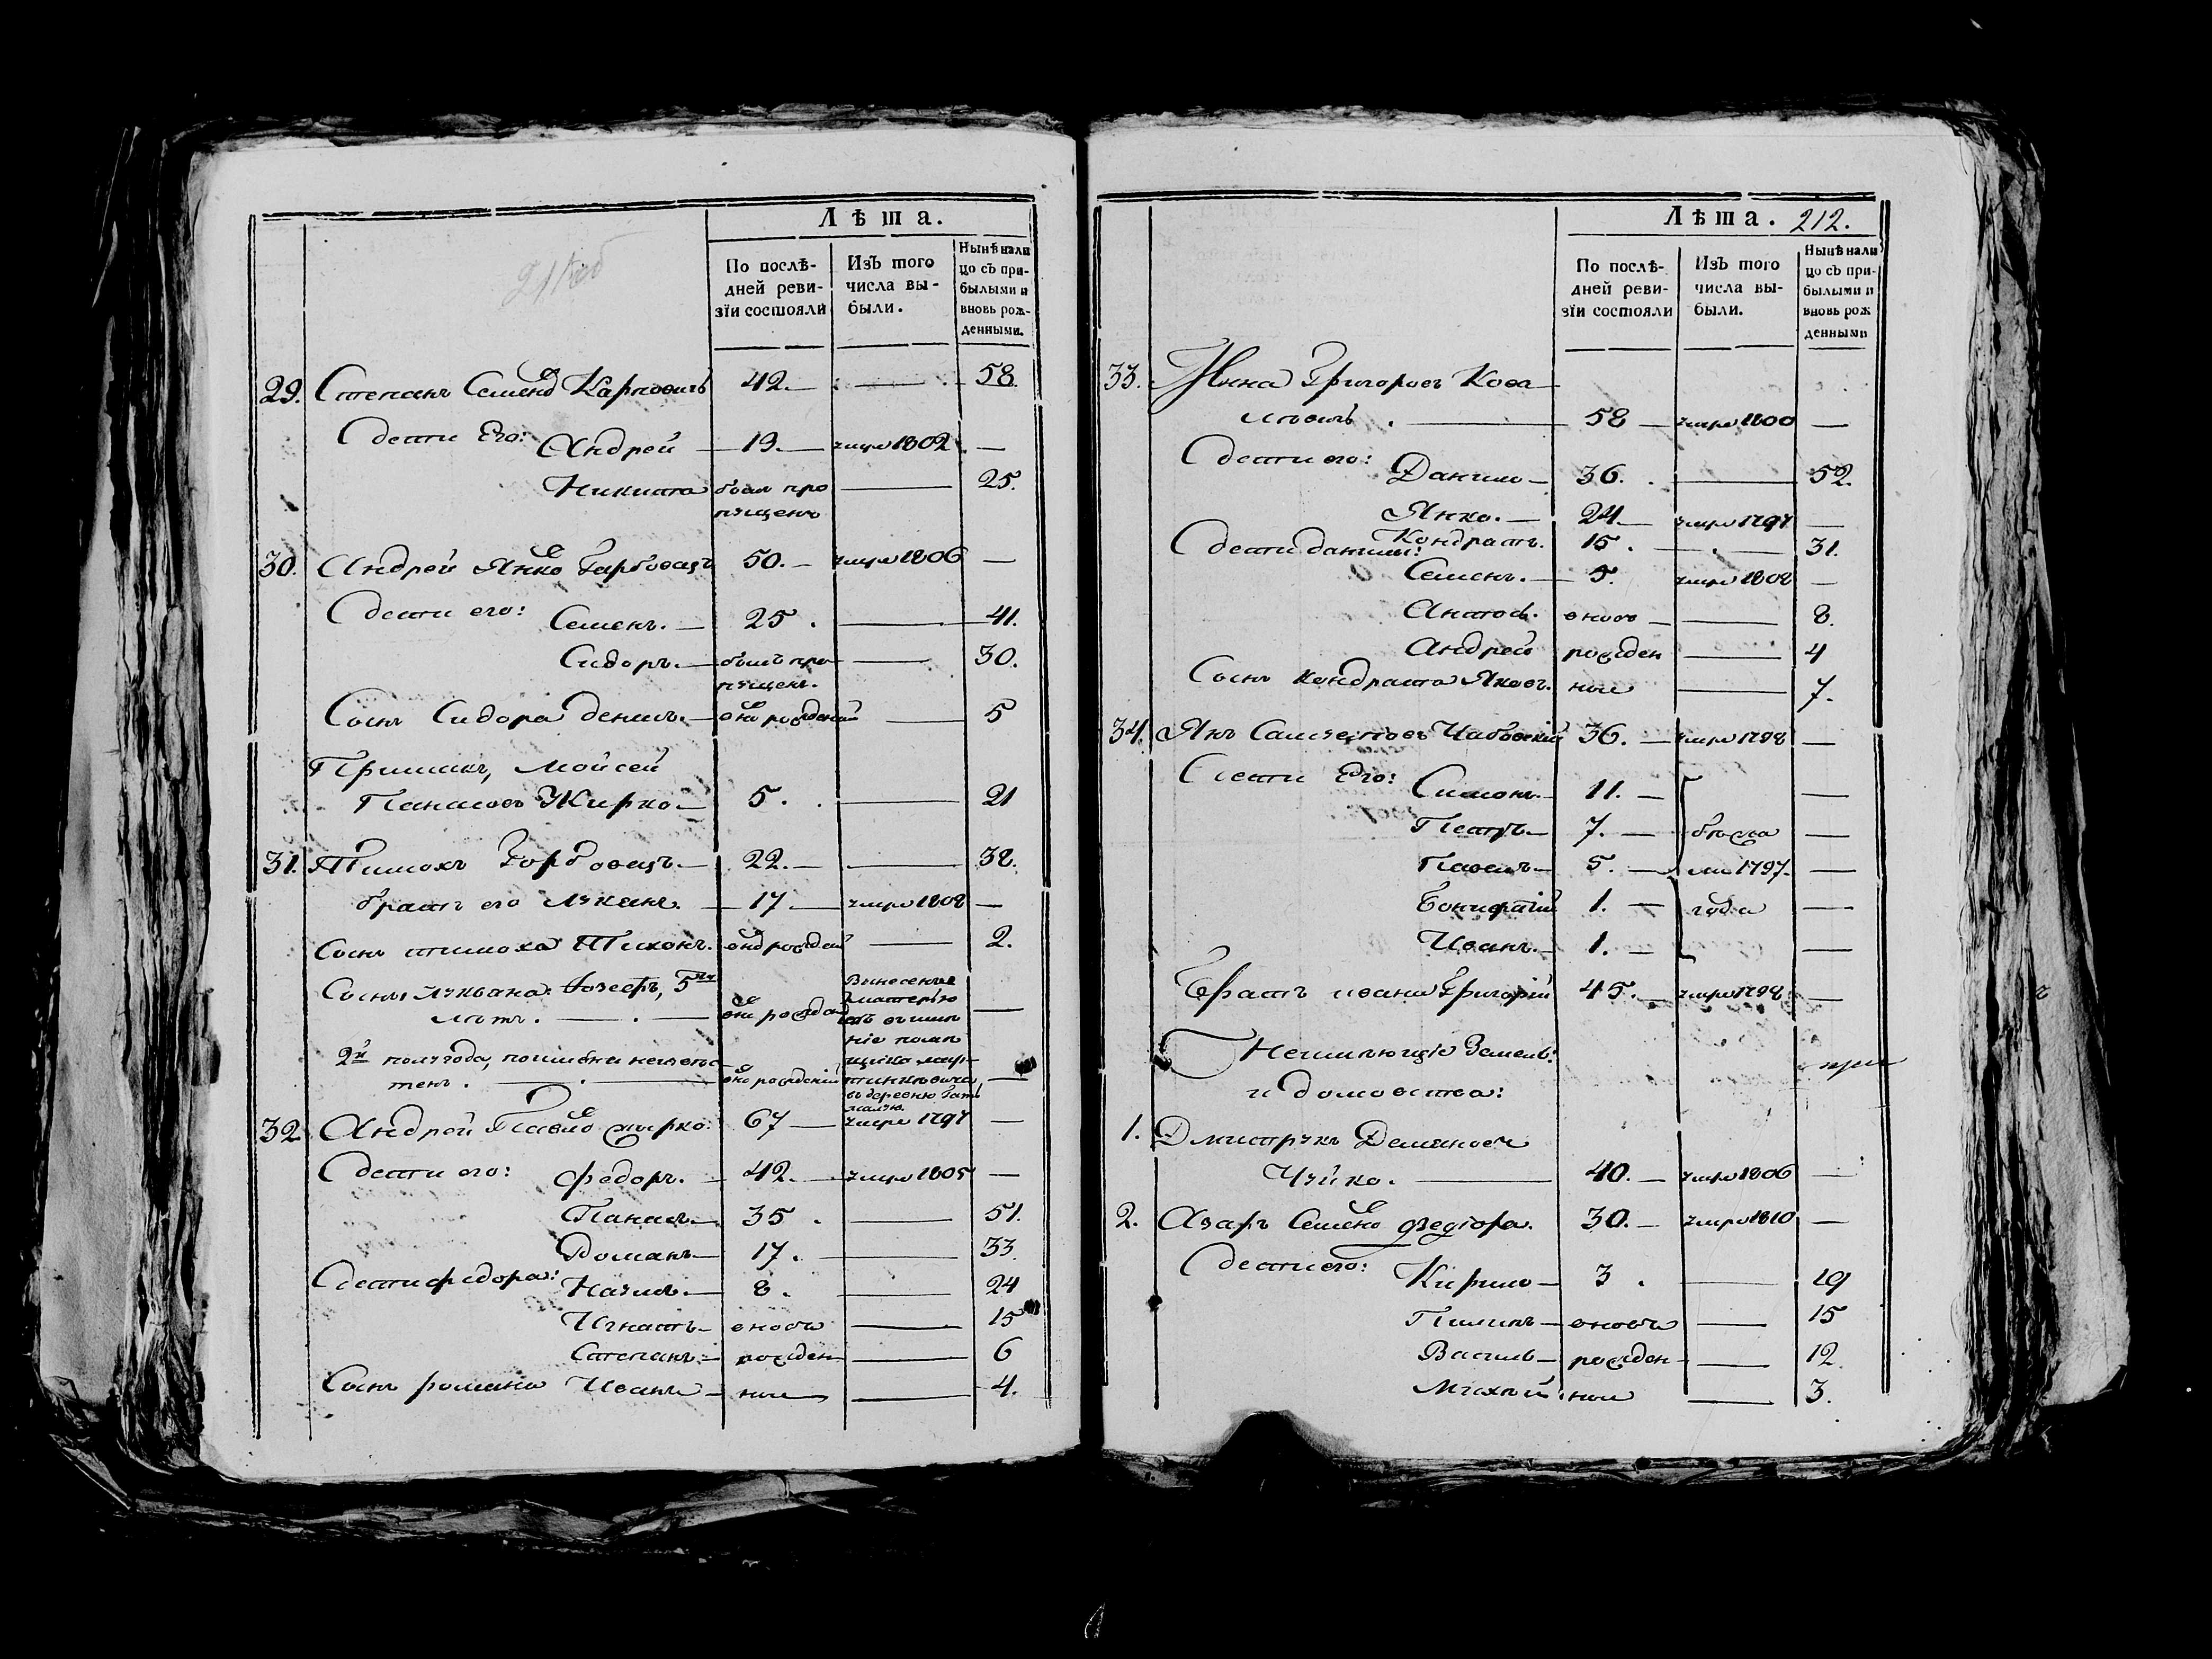 Лѣта.
По послѣ-
дней реви-
зїи состояли
Изъ того
числа вы-
были.
Нынѣ нали
цо съ при-
былыми и
вновь рож-
денными.
29. Степанъ Семено Карповичъ 42. — 58.
Дети Его: Андрей — 19. — умре 1802 —
Никита был про — 25.
пущенъ
30. Андрей Янко Горбовецъ 50. — умре 1806 —
Дети его: Семенъ. — 25. — 41.
Сидоръ. — былъ про — 30.
пущенъ.
Сынъ Сидора Денисъ. — — 5
Примакъ, Мойсей
Панасовъ Жирко — 5. — 21
31. Тимохъ Горбовецъ. — 22. — — 38.
братъ его Лукьянъ. — 17 — умре 1808 —
Сынъ тимоха Тихонъ. — 2.
Сыны Лукьяна: Іозефъ, 5ти
летъ. — . —
Вынесены
з матерью
ніе помѣ
щика
въ деревню
2й полугода,
32. Андрей Павло жирко: 67 — умре 1797 —
Дети его: Федоръ. — 42. — умре 1805 —
Панасъ — 35. — 51.
Романъ — 17. — 33.
Дети федора: Наумъ. — 8. — 24
Игнатъ — вновь — 15
Степанъ. — рожден — 6
Сынъ романа Иванъ — ные — 4.
Лѣта. 212.
По послѣ-
дней реви-
зїи состояли
Изъ того
числа вы-
были.
Нынѣ нали
цо съ при-
былыми и
вновь рож
денными
33. Григоровъ Кова —
левичъ . — 58 — умре 1800 —
Дети его: Данило — 36. . — 52.
Янко. — 24 — умре 1797 —
Дети данилы: Кондратъ. 15. — 31.
Семенъ. — 5. умре 1808 —
Антось. вново — 8.
Андрей рожден — 4
Сынъ Кондрата Яковъ. ные — 7.
34. Янъ Чабовскій 36. — умре 1798 —
Дети Его: Симонъ — 11. — —
Петръ — 7. — бежа —
Павелъ — 5. — ли 1797. —
Бонифатій 1. — года —
Иванъ. — 1. — —
Братъ ивана Григорій 45. — умре 1798 —
Неимѣющіе Земель:
и домовства:
1. Дмитрукъ Демяновъ
Чуйко. — 40. — умре 1806 —
2. Азаръ Семено 30. — умре 1810 —
Дети его: Кирило — 3. — 19
Пилипъ — вновь — 15
Василь — рожден — 12.
Михей ные — 3.